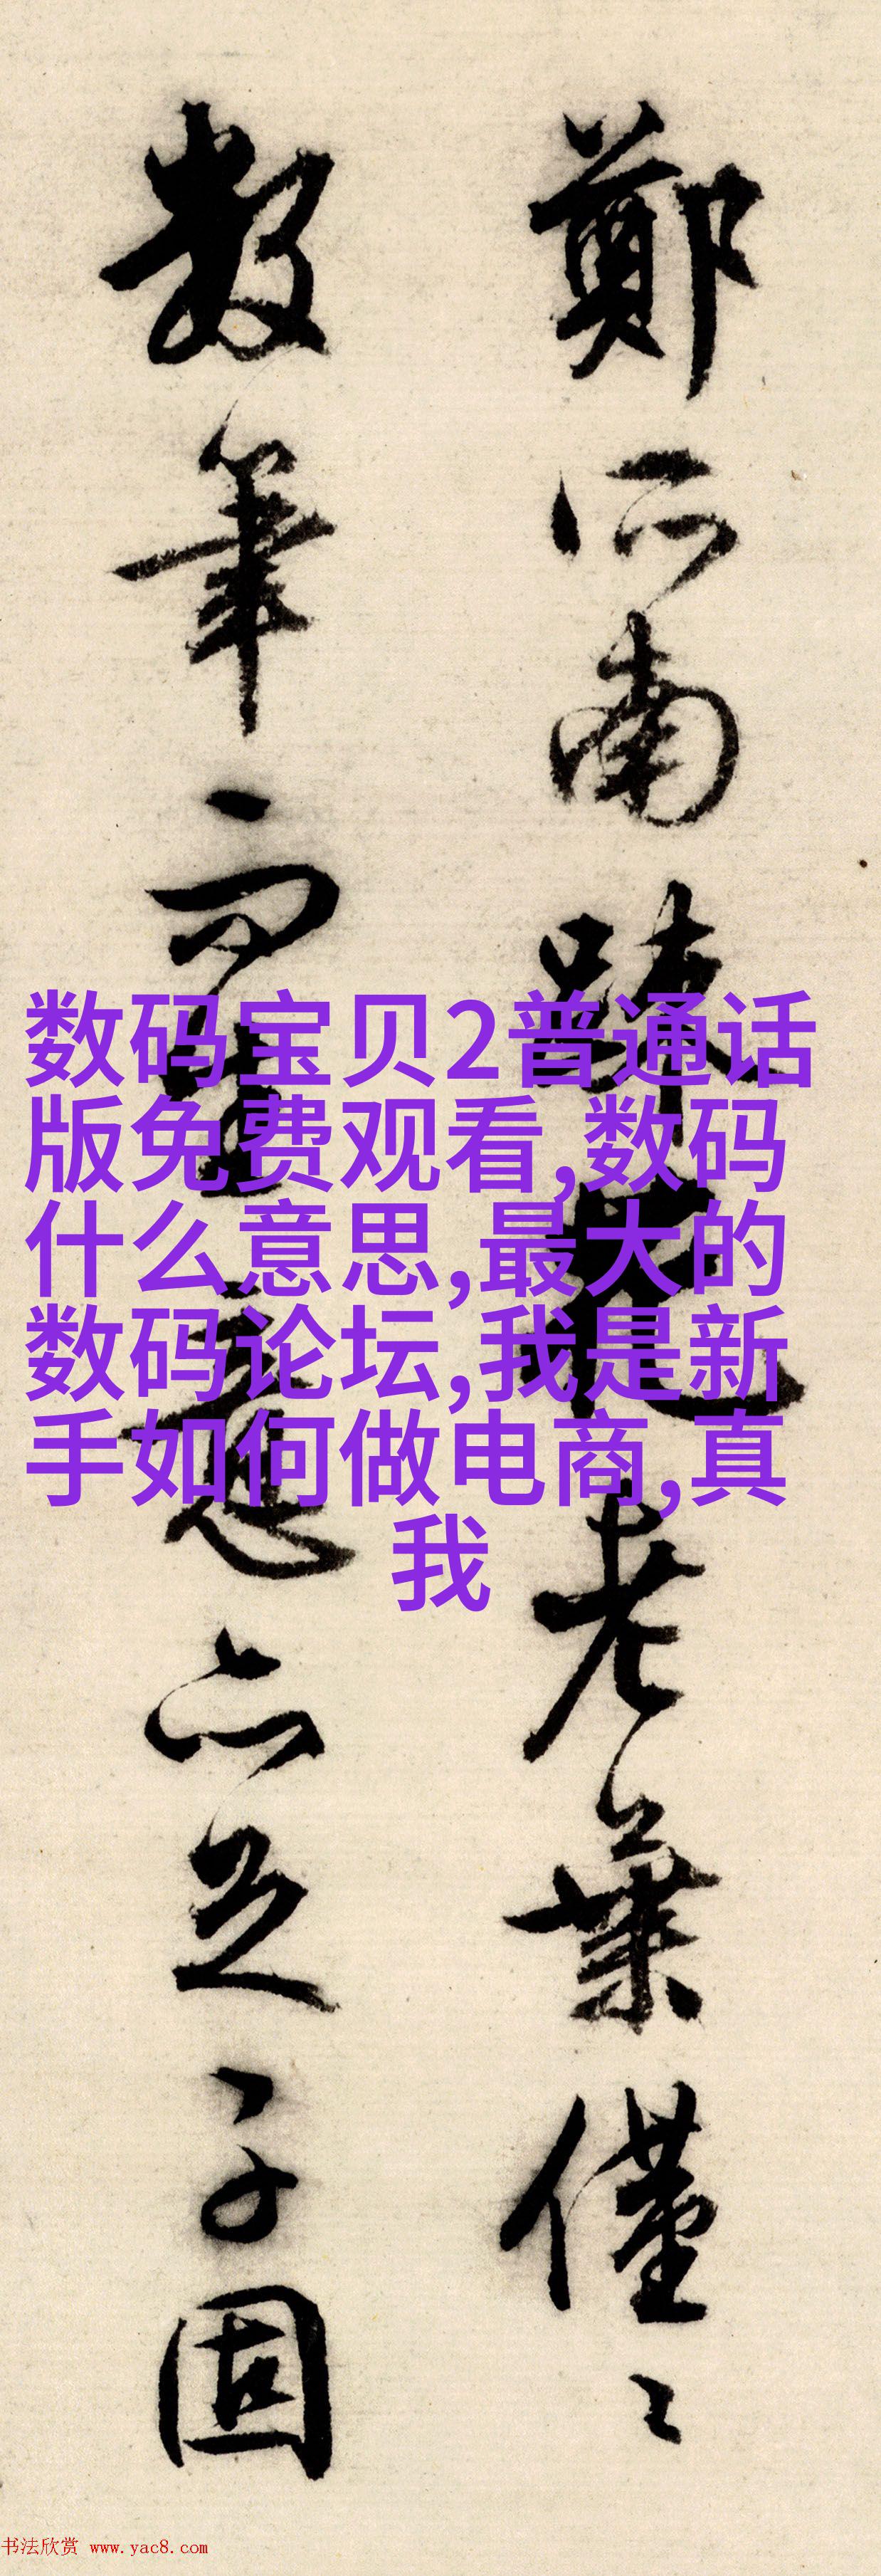 鄭所南疎花老葉僅〻
數筆而生意亦足子固
数码宝贝2普通话
版免费观看,数码
什么意思,最大的
数码论坛,我是新
手如何做电商,真
我
书法欣赏 www.yac8.com